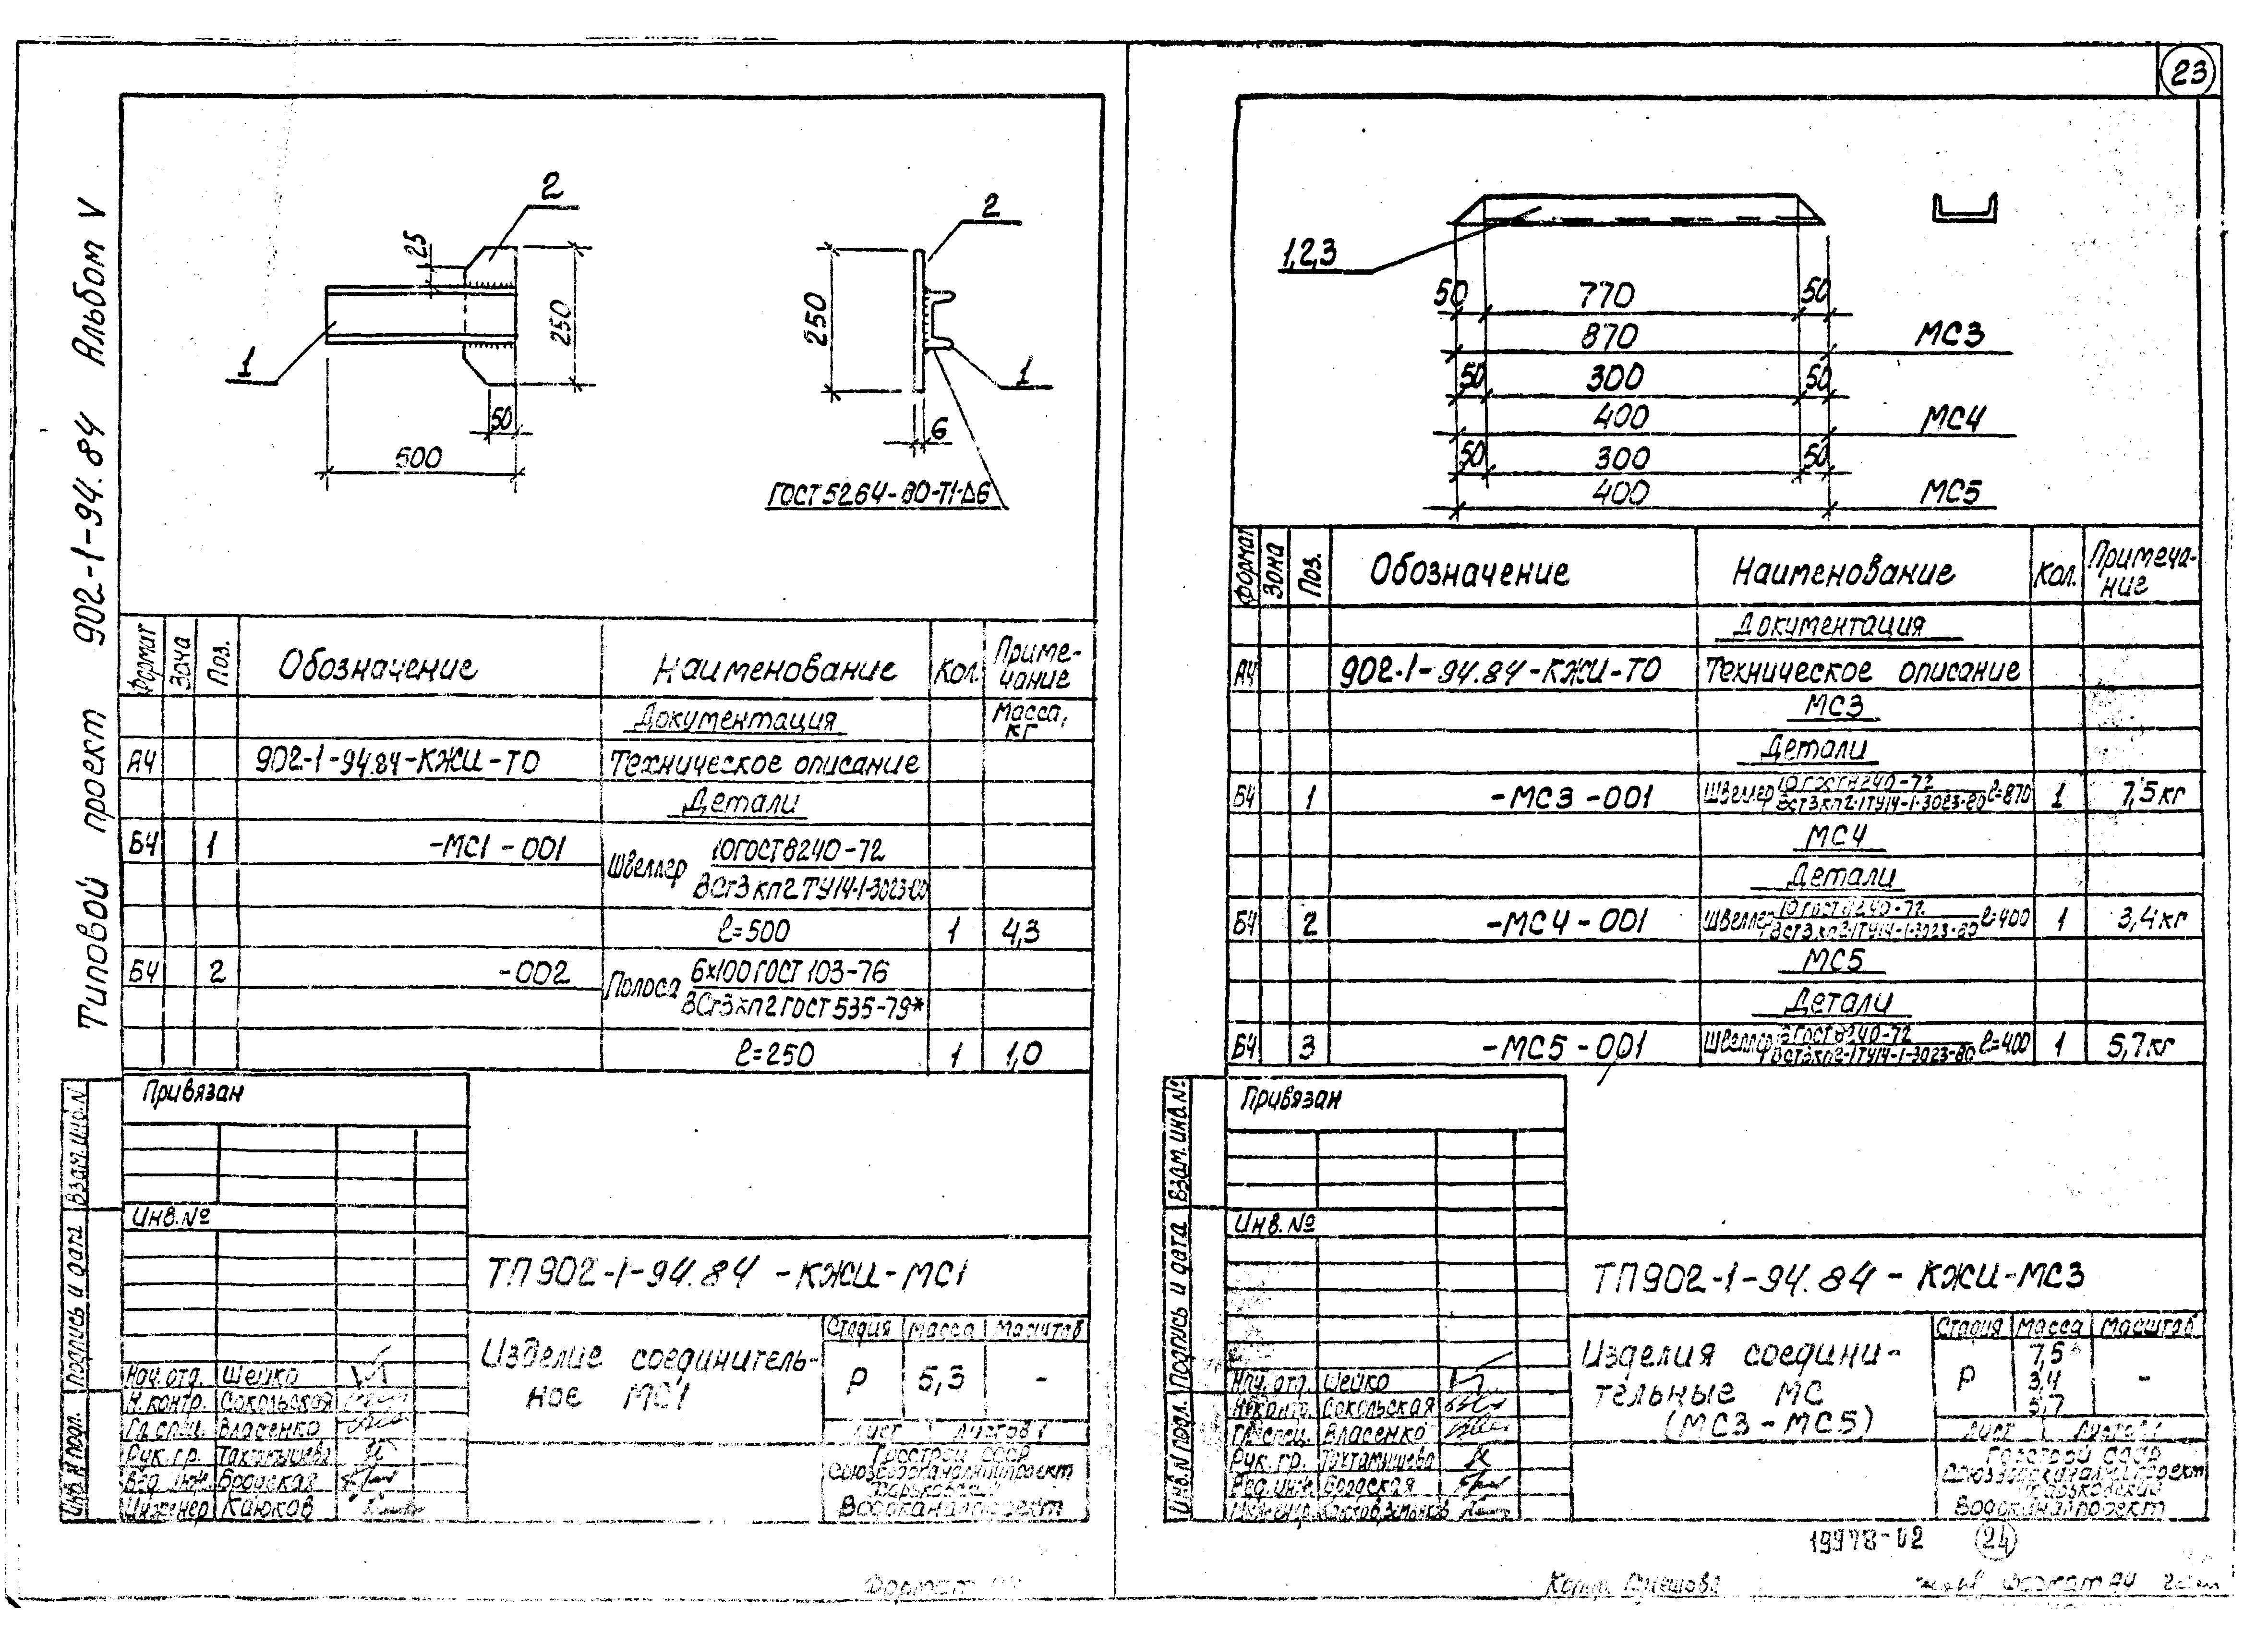 23
Типовой проект 902-1-94.84 Альбом V
2
25
250
1
50
500
2
250
1
6
ГОСТ 5264-80-Т1-Δ6
Формат Зона Поз. Обозначение Наименование Кол. Приме-
чание
Документация Масса,
кг
А4 902-1-94.84-КЖИ-ТО Техническое описание
Детали
Б4 1 -МС1-001 Швеллер 10 ГОСТ 8240-72
ВСт3кп2 ТУ14-1-3023-80
ℓ=500 1 4,3
Б4 2 -002 Полоса 6х100 ГОСТ 103-76
ВСт3кп2 ГОСТ 535-79*
ℓ=250 1 1,0
Привязан
Инв.№
Взам.инв.N
Подпись и дата
Инв.N подл.
ТП902-1-94.84-КЖИ-МС1
Изделие соединитель-
ное МС1
Стадия Масса Масштаб
Р 5,3 -
Лист Листов 1
Госстрой СССР
Союзводоканалниипроект
Харьковский
Водоканалпроект
Нач.отд. Шейко
Н.контр. Сокольская
Гл.спец. Власенко
Рук.гр. Тахтамышева
Вед.инж. Бродская
Инженер Каюков
Формат
1,2,3
50 770 50
870 МС3
50 300 50
400 МС4
50 300 50
400 МС5
Формат Зона Поз. Обозначение Наименование Кол. Примеча-
ние
Документация
А4 902-1-94.84-КЖИ-ТО Техническое описание
МС3
Детали
Б4 1 -МС3-001 Швеллер 10 ГОСТ 8240-72
ВСт3кп2-1ТУ14-1-3023-80 ℓ=870 1 7,5кг
МС4
Детали
Б4 2 -МС4-001 Швеллер 10 ГОСТ 8240-72
ВСт3кп2-1ТУ14-1-3023-80 ℓ=400 1 3,4кг
МС5
Детали
Б4 3 -МС5-001 Швеллер ГОСТ 8240-72
ВСт3кп2-1ТУ14-1-3023-80 ℓ=400 1 5,7кг
Привязан
Инв.№
Взам.инв.№
Подпись и дата
Инв.N подл.
ТП902-1-94.84-КЖИ-МС3
Изделия соедини-
тельные МС
(МС3-МС5)
Стадия Масса Масштаб
7,5
Р 3,4 -
5,7
Лист Листов 1
Госстрой СССР
Союзводоканалниипроект
Харьковский
Водоканалпроект
Нач.отд. Шейко
Н.контр. Сокольская
Гл.спец. Власенко
Рук.гр. Тахтамышева
Вед.инж. Бродская
Инженер Каюков,
19978-02 24
Копир. Формат А4